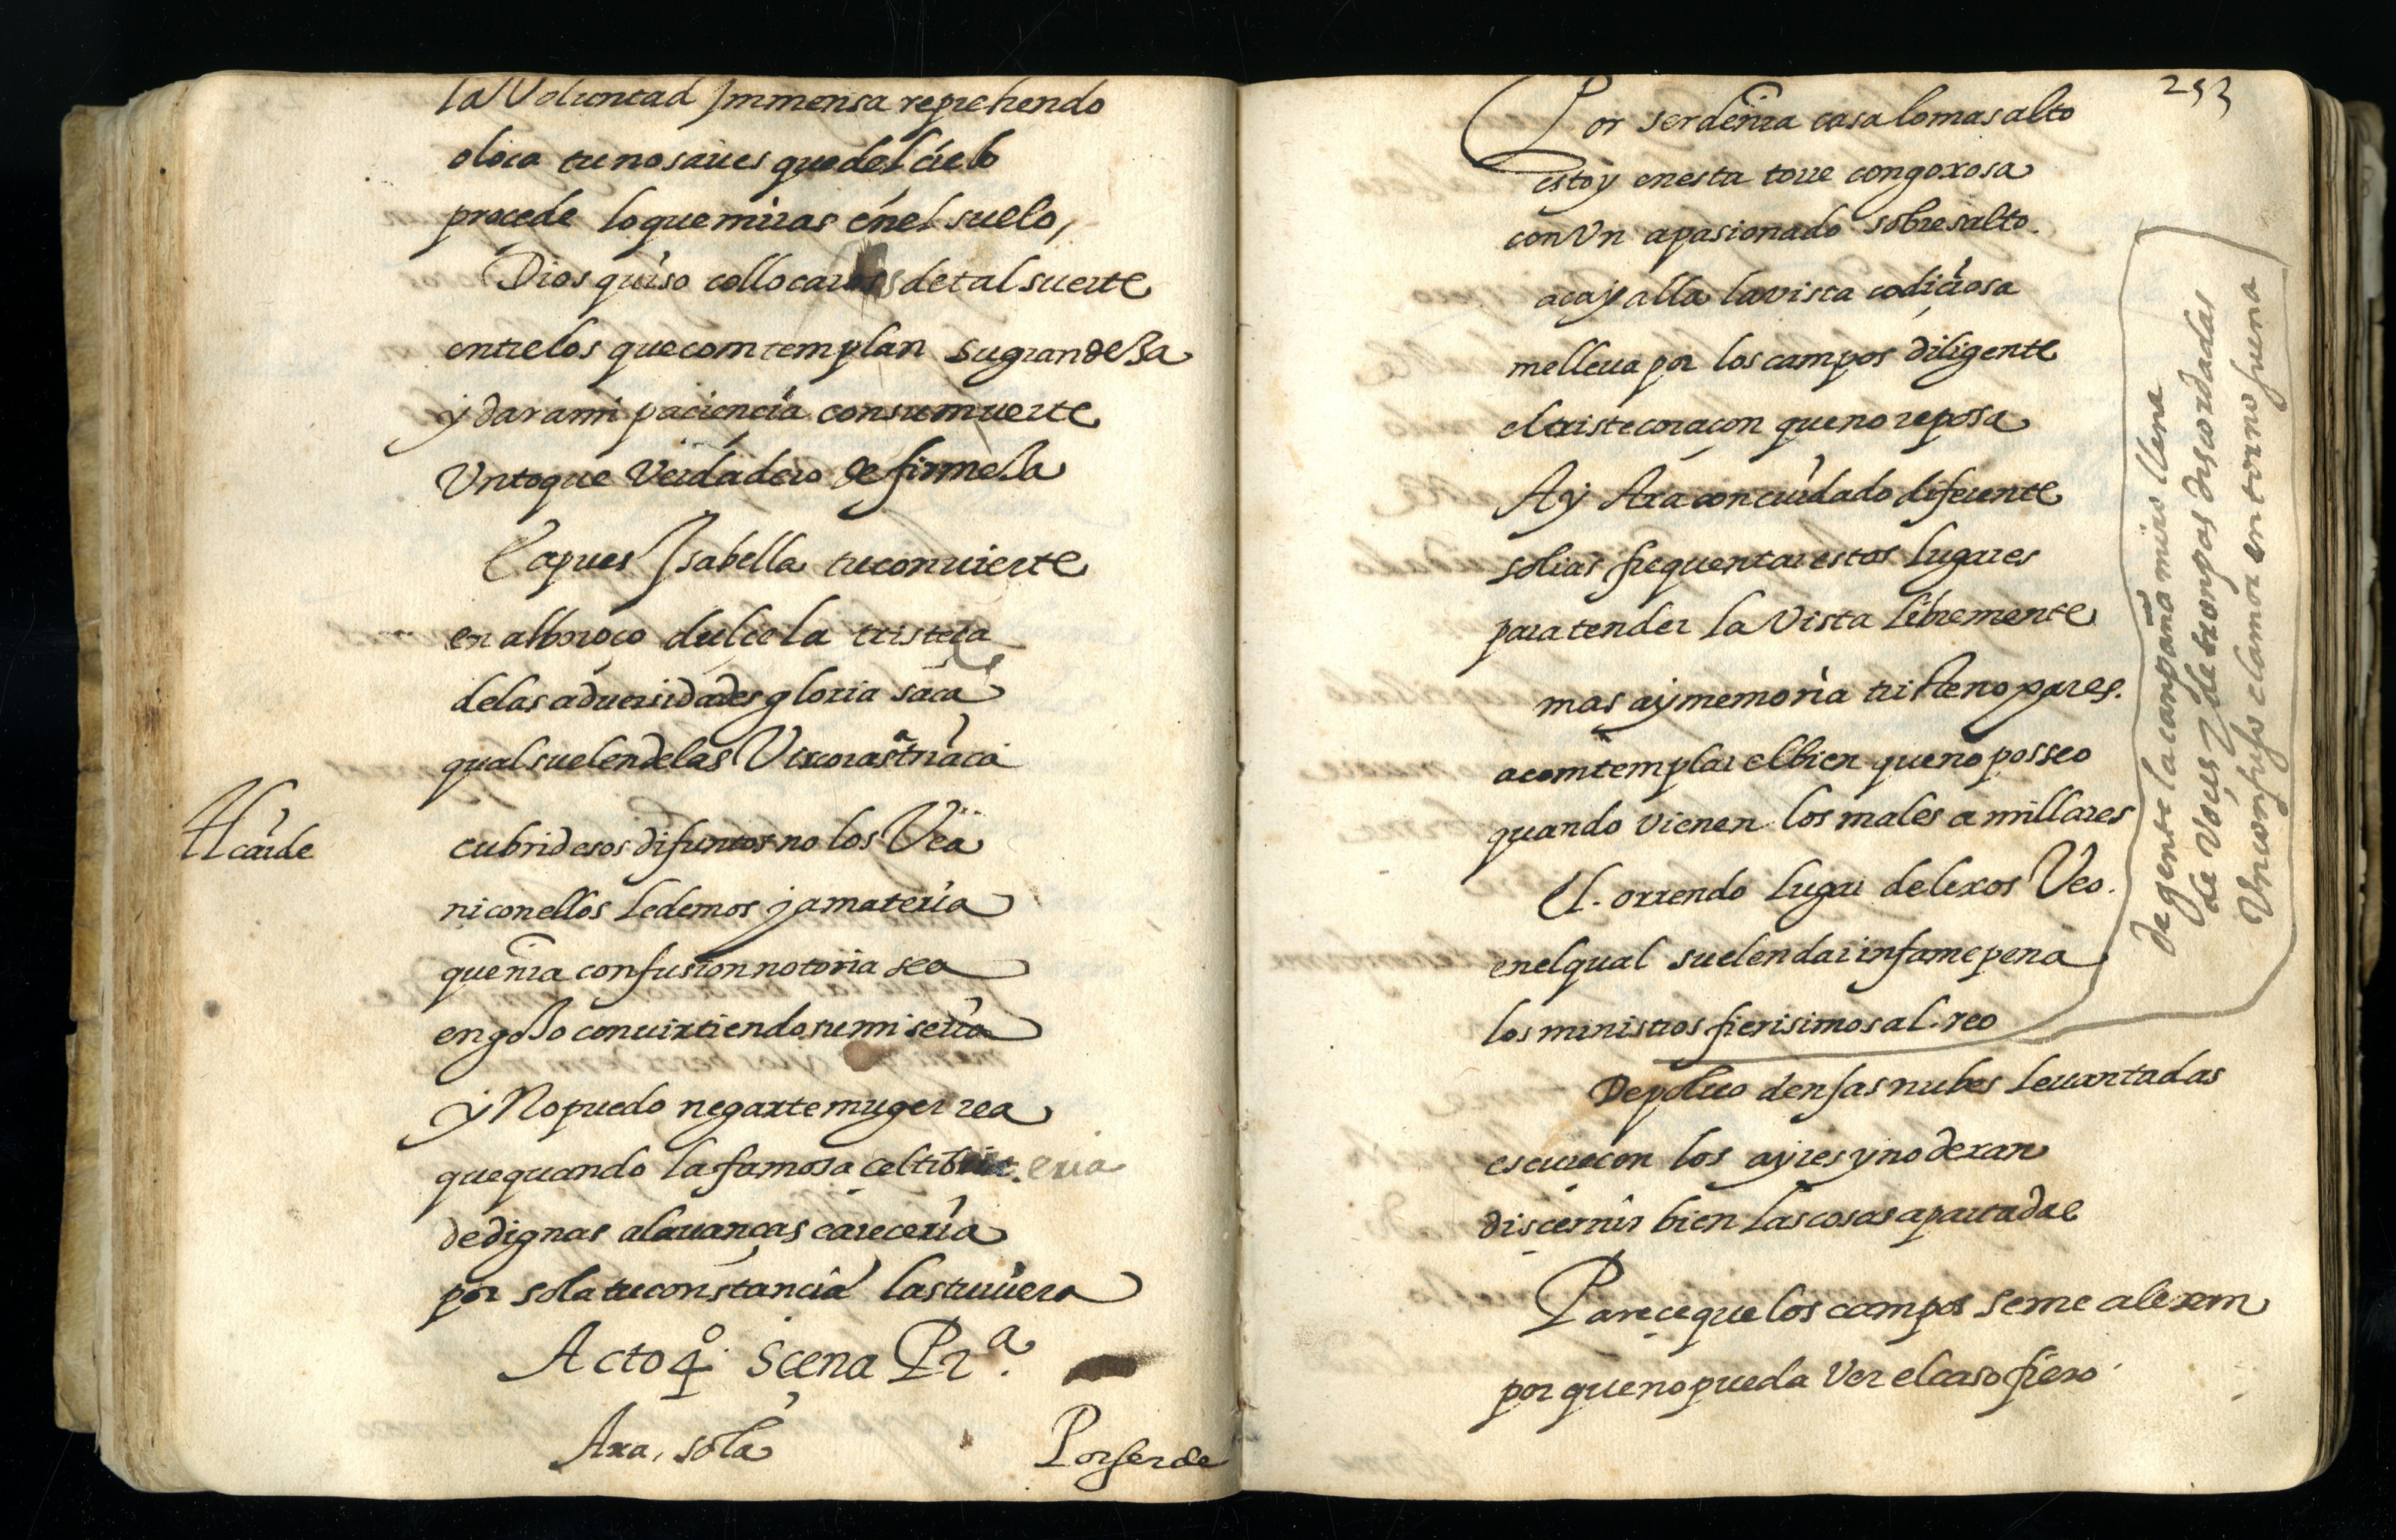 la Voluntad Immensa reprehendo
o loca tu no saues que del cielo
procede lo que miras en el suelo,
Dios quiso collocaros de tal suerte
entre los que comtemplan su grandeza
y dar a mi paciencia con su muerte
Un toque Verdadero de firmeza
Ea pues Isabella tu conuierte
en alboroço dulce la tristeça
de las aduersidades gloria saca
qual suelen de las Viuoras triaca
Alcaide
cubrid esos difuntos no los Vea
ni con ellos le demos ya materia
que nra confusion notoria sea
en gozo conuirtiendo su miseria
y No puedo negarte muger rea
que quando la famosa celtiberia
de dignas alauanças careceria
por sola tu constancia las tuuiera
Acto 4º. Scena Prª.
Axa, sola
Por ser de
253
Por ser de nra casa lo mas alto
estoy en esta torre congoxosa
con Vn apasionado sobresalto.
aca y alla la vista codiciosa
me lleua por los campos diligente
el triste coraçon que no reposa
Ay Axa con cuidado diferente
solias frequentar estos lugares
para tender la Vista libremente
mas ay memoria triste no pares.
a comtemplar el bien que no posseo
quando vienen los males a millares
El. orrendo lugar de lexos Veo.
en el qual suelen dar infame pena
los ministros fierisimos al. reo
de gente la campaña miro llena
de vozes y de trompas discordadas
Un confuso clamor en torno suena
De poluo densas nubes leuantadas
escurecen los ayres y no dexan
discernir bien las cosas apartadas
Parece que los campos se me alexan
por que no pueda Ver el caso fiero